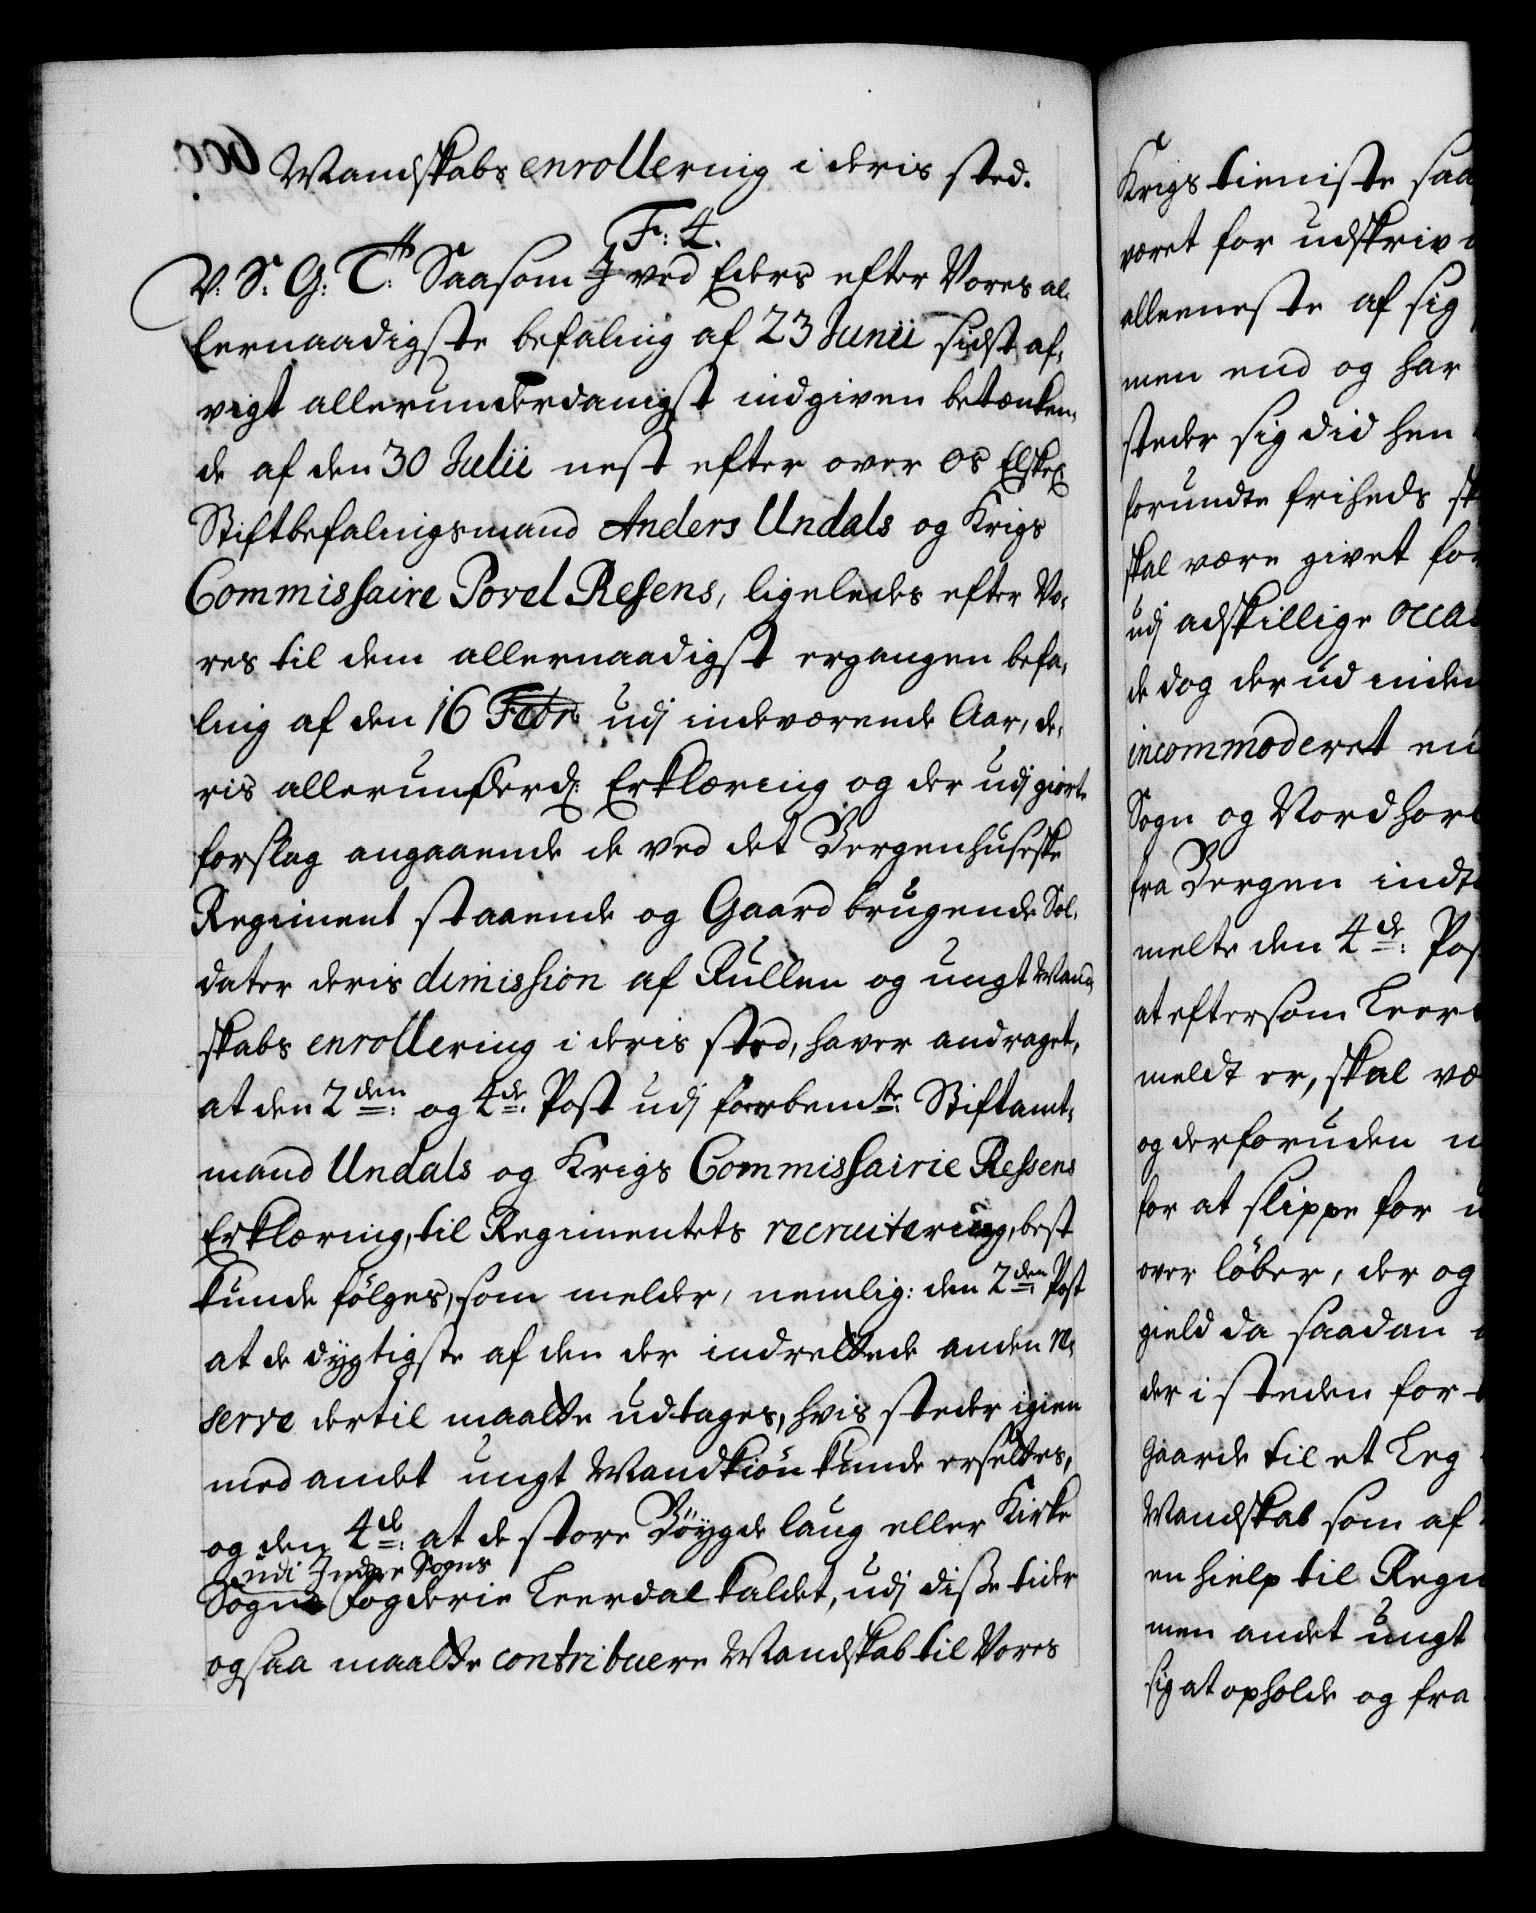 Mandskabs enrollering i deris sted.
F: 4.
V. S. G. T. Saasom I ved Eders efter Vores al-
lernaadigste befaling af 23 Junii sidst af-
vigt allerunderdanigst indgiven betænken-
de af den 30 Julii nest efter over os Elskel.
Stiftbefalingsmand Anders Undals og Krigs
Commissaire Povel Resens, ligeledes efter Vo-
res til dem allernaadigst ergangen befa-
ling af den 16 Febr: udj indeværende Aar, de-
ris allerunderd: Erklæring og der udj giorte
forslag angaaende de ved det Bergenhusiske
Regiment staaende og Gaard brugende Sol-
dater deris dimission af Rullen og ungt Mand-
skabs enrollering i deris sted, haver andraget,
at den 2den: og 4de: Post udj forbemte: Stiftamt-
mand Undals og Krigs Commissairie Ressens
Erklæring, til Regimentets recruitering, best
kunde følges, som melder, nemlig: den 2den Post
at de dygtigste af den der indrettede anden re-
serve dertil maatte udtages, hvis steder igien
med andet ungt Mandkiøn kunde ersettes,
og den 4de: at de store Bøygde laug eller Kirke
udi Indre Sogns
Sogne Fogderie Leerdal kaldet, udj disse tider
ogsaa maatte contribuere Mandskab til Vores
Krigs tieniste saa
været for udskriv
alleeneste af sig
men end og har
steder sig did hen
forundte friheds
skal være givet for
udj adskillige occa
de dog der ud inden
incommoderet en
Sogn og Nordhor
fra Bergen indt
melte den 4de: Pos
at eftersom Leer
meldt er, skal væ
og derforuden
for at slippe for
over løber, der og
gield da saadan
der i steden for
Gaarde til et Leg
Mandskab som af
en hielp til Regi
men andet ungt
sig at opholde og fra